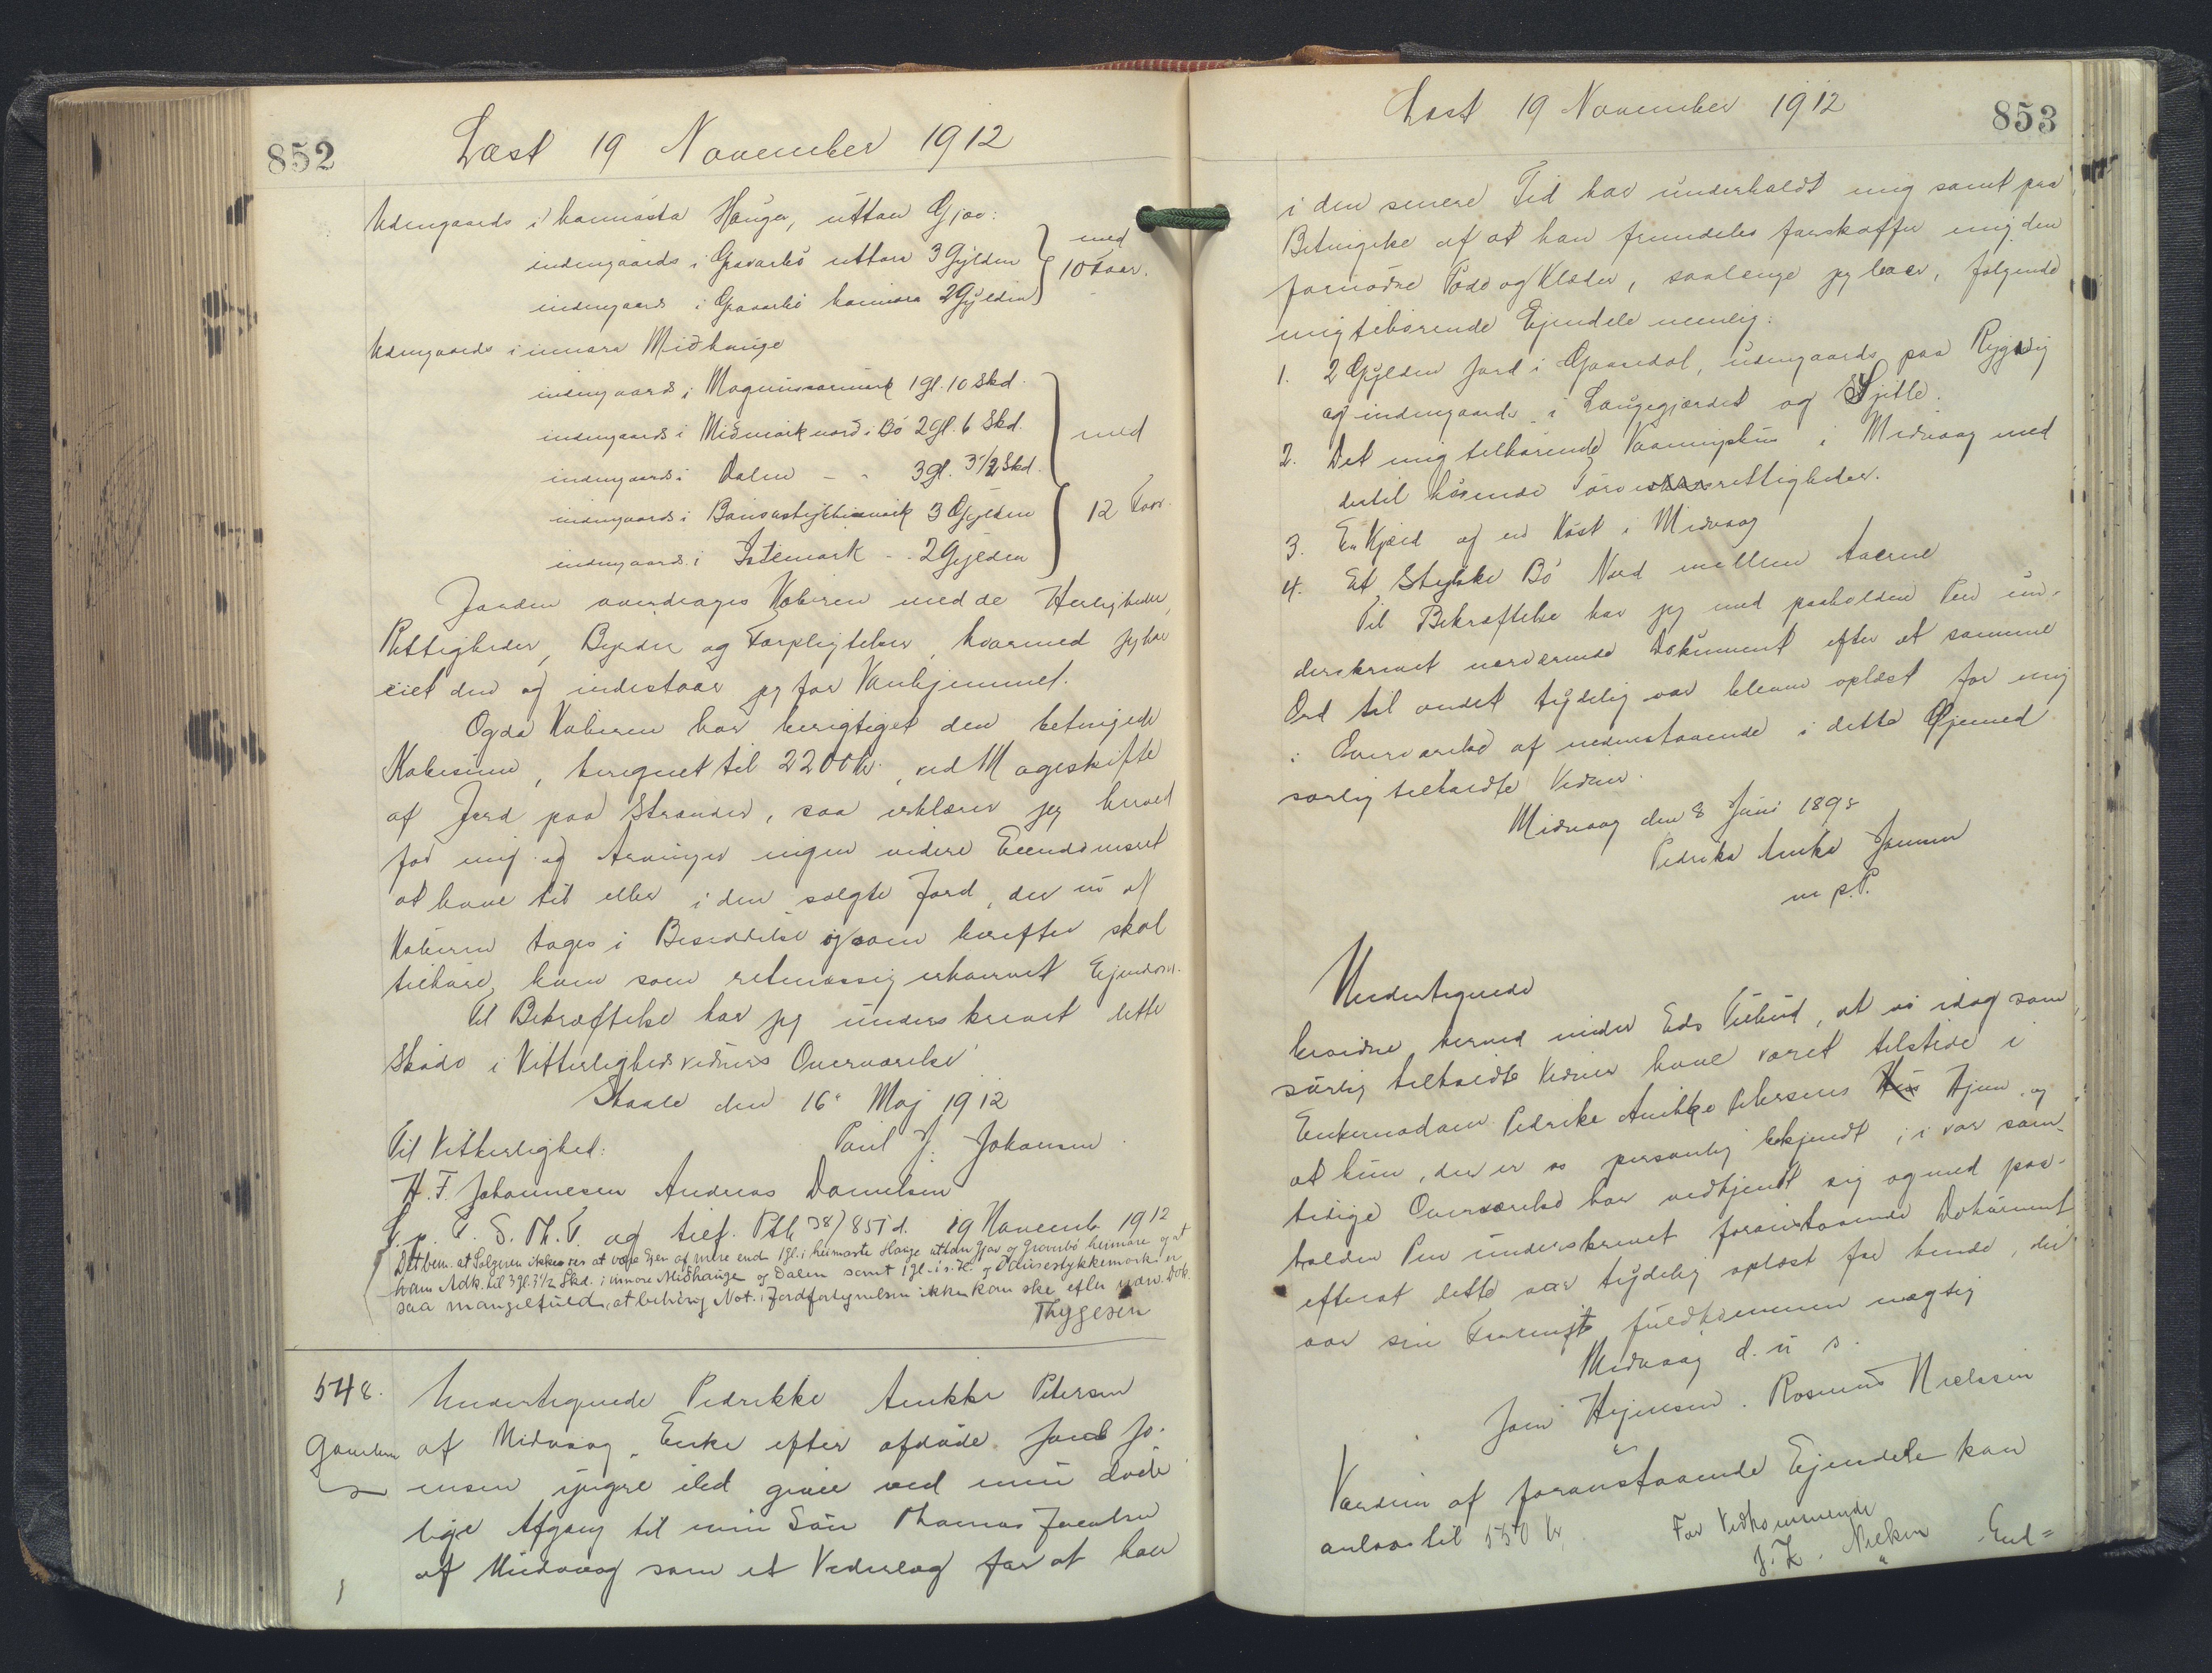 852
Læst 19 November 1912
Udengaards i hamasta Hauga, uttan Gjov:
indengaards i Gravarbö uttara 3 Gylden } med
indengaards i Gravarbö hamara 2 Gylden } 10 Faar.
Udengaards i innara Miðhauge
indengaards i Magnussarmark 1 gl. 10 Skd.
indengaards i Miðmark nord i Bö 2 gl. 6 Skd. } med
indengaards i Dalen - - 3 gl. 3 1/2 Skd.
indengaards i Bausastykkimark 3 Gylden } 12 Faar.
indengaards i Istemark - - 2 Gylden
Jorden overdrages Køberen med de Herligheder,
Rettigheder, Byrder og Forpligtelser, hvormed jeg har
eiet den og indestaar jeg for Vanhjemmel.
Og da Køberen har berigtiget den betingede
Købesum, beregnet til 2200 Kr., ved Mageskifte
af Jord paa Strander, saa erklærer jeg herved
for mig og Arvinger ingen videre Eiendomsret
at have til eller i den solgte Jord, der nu af
Køberen tages i Besiddelse og som herefter skal
tilhøre ham som retmæssig erhvervet Ejendom.
Til Bekræftelse har jeg underskrevet dette
Skøde i Vitterlighedsvidners Overværelse
Skaale den 16 Maj 1912
Til Vitterlighed: Paul J. Johansen.
H. F. Johannesen Andreas Danielsen
L. p. E. S. Th. V. og tilf. Ptk 38) 851 d. 19 Novemb. 1912
Det bem. at Sælgeren ikke ses at være Ejer af mere end 1 gl. i heimaste Hauge uttan Gjov og Gravarbö heimare og at
hans Adk. til 3 gl. 3 1/2 Skd. i innare Miðhauge og Dalen samt 1 gl. i s. H. og Bausestykkemork er
saa mangelfuld, at behörig Not. i Jordfortegnelsen ikke kan ske efter nærv. Dok.
Thygesen
548. Undertegnede Pedrikke Anikke Petersen
Gavebrev af Midvaag, Enke efter afdøde Jacob Jo-
ensen yngre ibd. giver ved min døde
lige Afgang til min Søn Thomas Jacobsen
af Midvaag som et Vederlag for at han
853
Læst 19 November 1912
i den senere Tid har underholdt mig samt paa
Betingelse af at han fremdeles forskaffer mig den
fornødne Føde og Klæder, saalænge jeg lever, følgende
mig tilhørende Ejendele nemlig:
1. 2 Gylden Jord i Gaardal, udengaards paa Ryggsig
og indengaards i Laugegjærdet og Hjitle.
2. Det mig tilhørende Vaaningshus i Midvaag med
dertil hørende Tørverettigheder.
3. En Kjæld og en Nøst i Midvaag
4. Et Stykke Bö Nord mellem Aaerne
Til Bekræftelse har jeg med paaholden Pen un-
derskrevet nærværende Dokument efter at samme
Ord til andet tydelig var bleven oplæst for mig
i Overværelse af nedenstaaende i dette Øjemed
særlig tilkaldte Vidner.
Midvaag den 8 Juni 1898
Pedrika Anika Joensen
m p. P.
Undertegnede
bevidne herved under Eds Tilbud, at vi idag som
særlig tilkaldte Vidner have været tilstede i
Enkemadam Pedrike Anikke Petersens Hjem og
at hun, der er os personlig bekjendt, i vor sam-
tidige Overværelse har vedkjendt sig og med paa-
holden Pen underskrevet foranstaaende Dokument
efterat dette var tydelig oplæst for hende, der
var sin Fornuft fuldkommen mægtig
Midvaag d. u s.
Joen Hejnesen. Rasmus Nielsen
Værdien af foranstaaende Ejendele kan
anlaas til 550 Kr
For Vedkommende
J. Z. Nielsen
End=